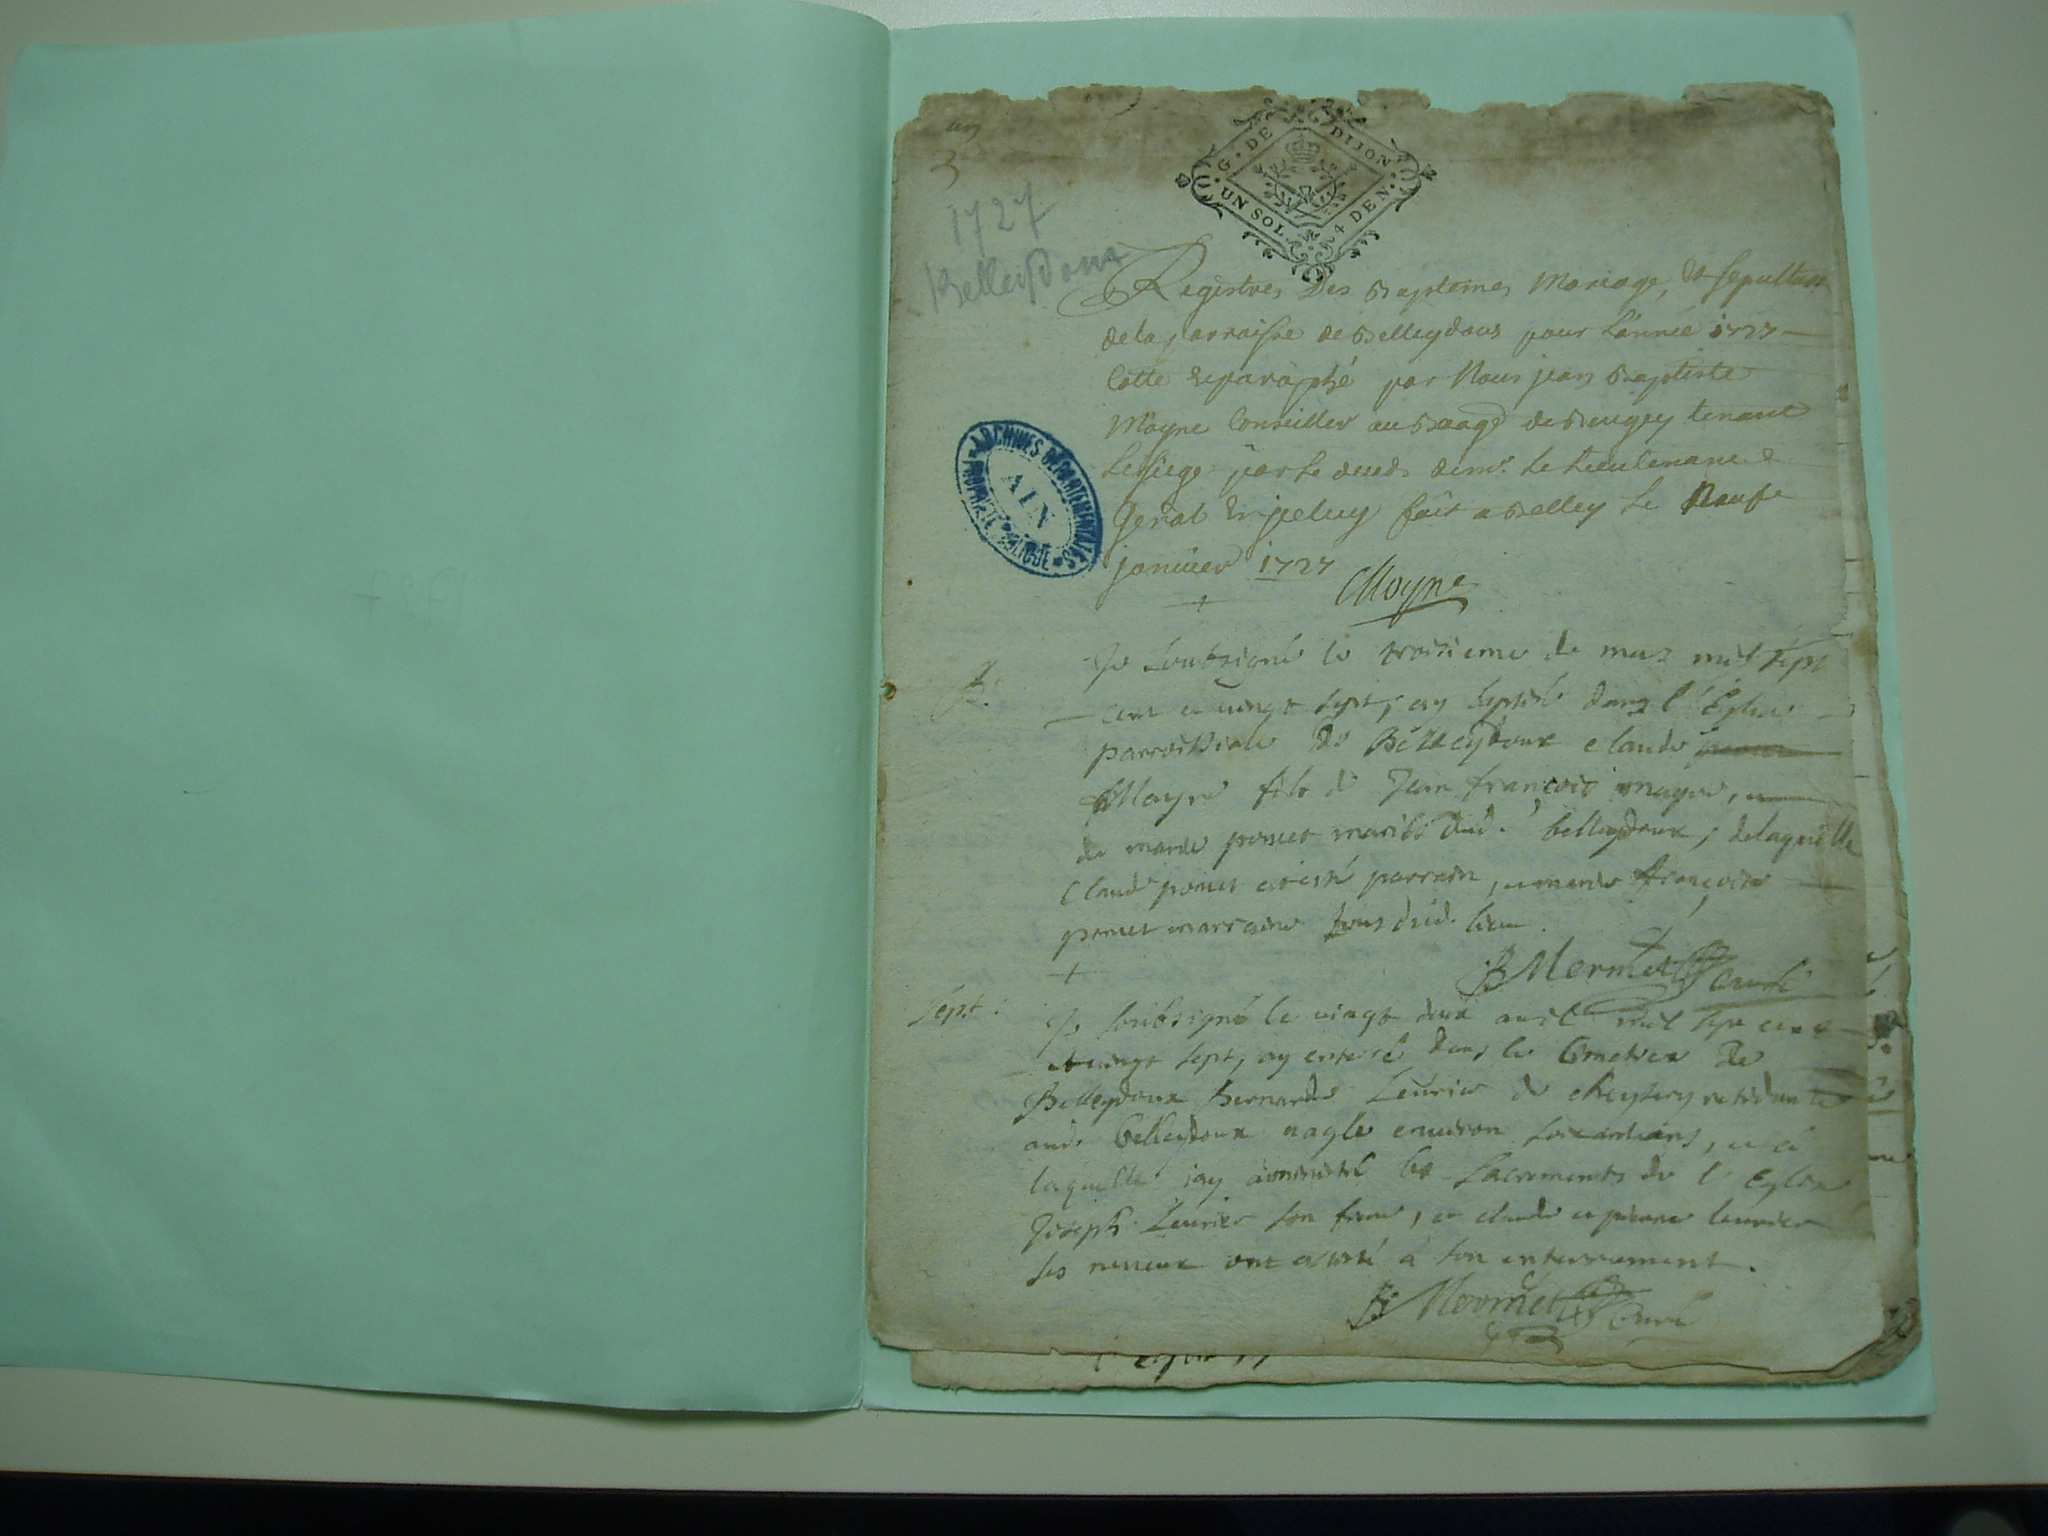 un
3
1727
Belleydoux
G. DE DIJON
UN SOL. 4 DEN.
ARCHIVES DÉPARTEMENTALES
AIN
PROPRIÉTÉ PUBLIQUE
Registres Des Baptemes Mariage, Et Sepulture
de la parroisse de Belleydoux pour L'année 1727
Cotté et paraphé par Nous jean Baptiste
Moyne Conseiller au Baage de Beugey tenant
Le siege par le deceds de mr. le Lieutenant
Gen̄al fait a Belley Le Neufe
janūier 1727
Moyne
Je soubsigné le troisieme de mars mil sept
cent et vingt sept, ay baptisé dans l'Église
parroissiale de Belleydoux claude
Mayre fils de Jean françois mayre, et
de marie poncet mariés dud. belleydoux, delaquelle
Claude poncet a esté parrein, et marie françoise
poncet marraine tous dud. lieu.
Mermet Curé
Sépt:
Je soubsigné le vingt deux avril mil sept cent
et vingt sept, ay enterré dans le Cimetiere de
Belleydoux Bernarde Leurier de cheysery residante
aud. belleydoux aagée environ soixante ans, et à
laquelle jay administré les Sacrements de l'Eglise
Joseph Leurier son frere, et claude et pierre leurier
ses neveux ont assisté à son enterrement.
Mermet Curé